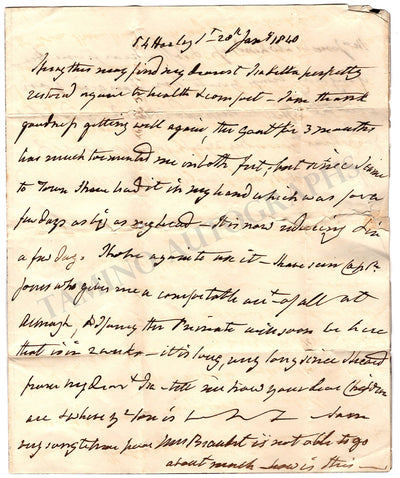 54 Harley St 20th Jany 1840
May this may find my dearest Isabella perfectly
restored again to health & comfort – I am thank
goodness getting well again, the Gout for 3 months
has much tormented me in both feet, but since I came
to Town I have had it in my hand which was for a
few days as big as my head – It is now reducing & in
a few days I hope again to use it – I have seen Capt.
Jones who gives me a comfortable acct. of all at
Armagh, & I fancy the Primate will soon be here
that is in 2 weeks – it is long, very long since I heard
from my dear – tell me how your dear Children
are & where yr Son is – I am
very sorry to hear poor Mrs is not able to go
about much – how is this –
TAMINO AUTOGRAPHS